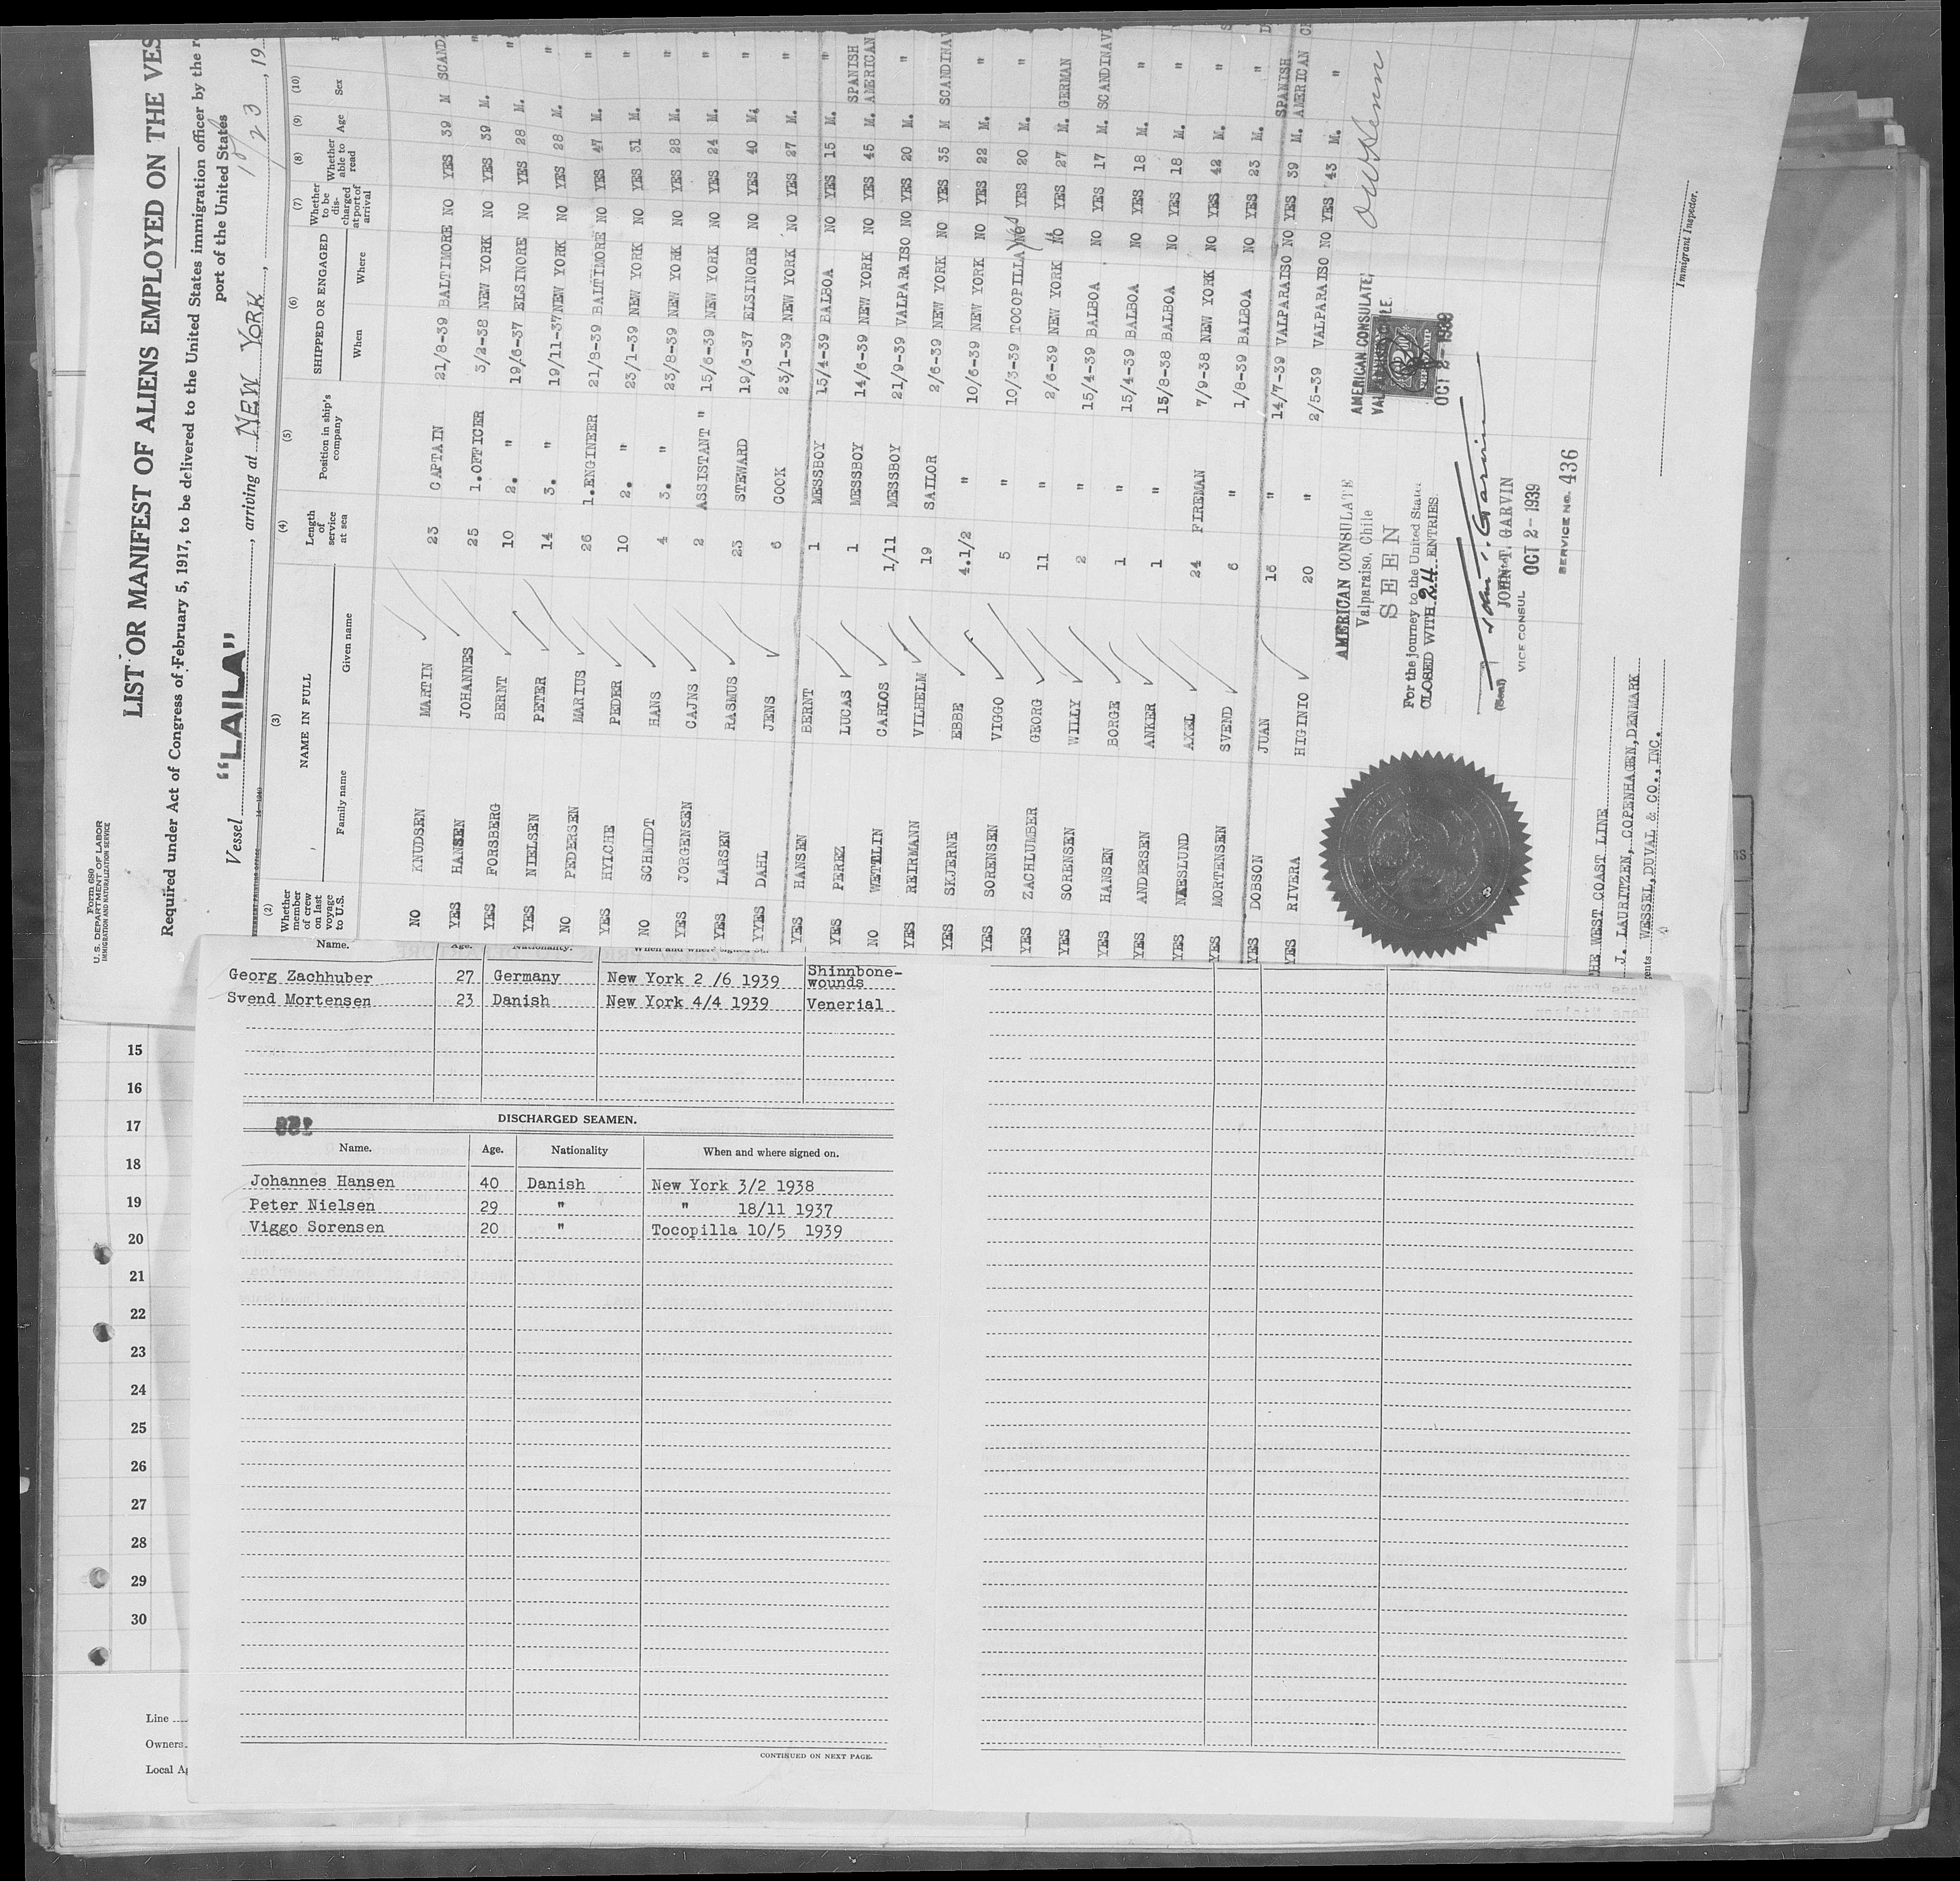 Form 680
U. S. DEPARTMENT OF LABOR
IMMIGRATION AND NATURALIZATION SERVICE
LIST OR MANIFEST OF ALIENS EMPLOYED ON THE VES
Required under Act of Congress of February 5, 1917, to be delivered to the United States immigration officer by the r
port of the United States
Vessel "LAILA", arriving at NEW YORK, 10/23, 19
(2) (3) (4) (5) (6) (7) (8) (9) (10)
Whether member of crew on last voyage to U.S. NAME IN FULL Family name Given name Length of service at sea Position in ship's company SHIPPED OR ENGAGED When Where Whether to be discharged at port of arrival Whether able to read Age Sex
NO KNUDSEN MARTIN 23 CAPTAIN 21/8-39 BALTIMORE NO YES 39 M SCAND
YES HANSEN JOHANNES 25 1.OFFICER 3/2-38 NEW YORK NO YES 39 M. "
YES FORSBERG BERNT 10 2. " 19/6-37 ELSINORE NO YES 28 M. "
YES NIELSEN PETER 14 3. " 19/11-37 NEW YORK NO YES 28 M. "
NO PEDERSEN MARIUS 26 1.ENGINEER 21/8-39 BALTIMORE NO YES 47 M. "
YES HYLCHE PEDER 10 2. " 23/1-39 NEW YORK NO YES 31 M. "
NO SCHMIDT HANS 4 3. " 23/8-39 NEW YORK NO YES 28 M. "
YES JORGENSEN CAJNS 2 ASSISTANT " 15/6-39 NEW YORK NO YES 24 M. "
YES LARSEN RASMUS 23 STEWARD 19/6-37 ELSINORE NO YES 40 M. "
YYES DAHL JENS 6 COOK 23/1-39 NEW YORK NO YES 27 M. "
YES HANSEN BERNT 1 MESSBOY 15/4-39 BALBOA NO YES 15 M. "
YES PEREZ LUCAS 1 MESSBOY 14/6-39 NEW YORK NO YES 45 M. SPANISH AMERICAN
NO WETTLIN CARLOS 1/11 MESSBOY 21/9-39 VALPARAISO NO YES 20 M. "
YES REIRMANN VILHELM 19 SAILOR 2/6-39 NEW YORK NO YES 35 M SCANDINAV
YES SKJERNE EBBE 4.1/2 " 10/6-39 NEW YORK NO YES 22 M. "
YES SORENSEN VIGGO 5 " 10/3-39 TOCOPILLA Yes NO YES 20 M. "
YES ZACHLUMBER GEORG 11 " 2/6-39 NEW YORK NO YES 27 M. GERMAN
YES SORENSEN WILLY 2 " 15/4-39 BALBOA NO YES 17 M. SCANDINAVI
YES HANSEN BORGE 1 " 15/4-39 BALBOA NO YES 18 M. "
YES ANDERSEN ANKER 1 " 15/8-38 BALBOA NO YES 18 M. "
YES NAESLUND AXEL 24 FIREMAN 7/9-38 NEW YORK NO YES 42 M. "
YES MORTENSEN SVEND 6 " 1/8-39 BALBOA NO YES 23 M. "
YES DOBSON JUAN 16 " 14/7-39 VALPARAISO NO YES 39 M. SPANISH AMERICAN
YES RIVERA HIGINIO 20 " 2/5-39 VALPARAISO NO YES 43 M. "
AMERICAN CONSULATE
Valparaiso, Chile
SEEN
For the journey to the United States
CLOSED WITH 24 ENTRIES.
(Seal)
JOHN T. GARVIN
VICE CONSUL
OCT 2 - 1939
SERVICE No. 436
AMERICAN CONSULATE,
OCT 2 - 1939
Immigrant Inspector.
HE WEST COAST LINE
J. LAURITZEN, COPENHAGEN, DENMARK
ents WESSEL, DUVAL & CO., INC.
Name. Age. Nationality. When and where signed
Georg Zachhuber 27 Germany New York 2 /6 1939 Shinnbone-wounds
Svend Mortensen 23 Danish New York 4/4 1939 Venerial
DISCHARGED SEAMEN.
Name. Age. Nationality When and where signed on.
Johannes Hansen 40 Danish New York 3/2 1938
Peter Nielsen 29 " " 18/11 1937
Viggo Sorensen 20 " Tocopilla 10/5 1939
CONTINUED ON NEXT PAGE.
15
16
17
18
19
20
21
22
23
24
25
26
27
28
29
30
Line
Owners
Local Ag